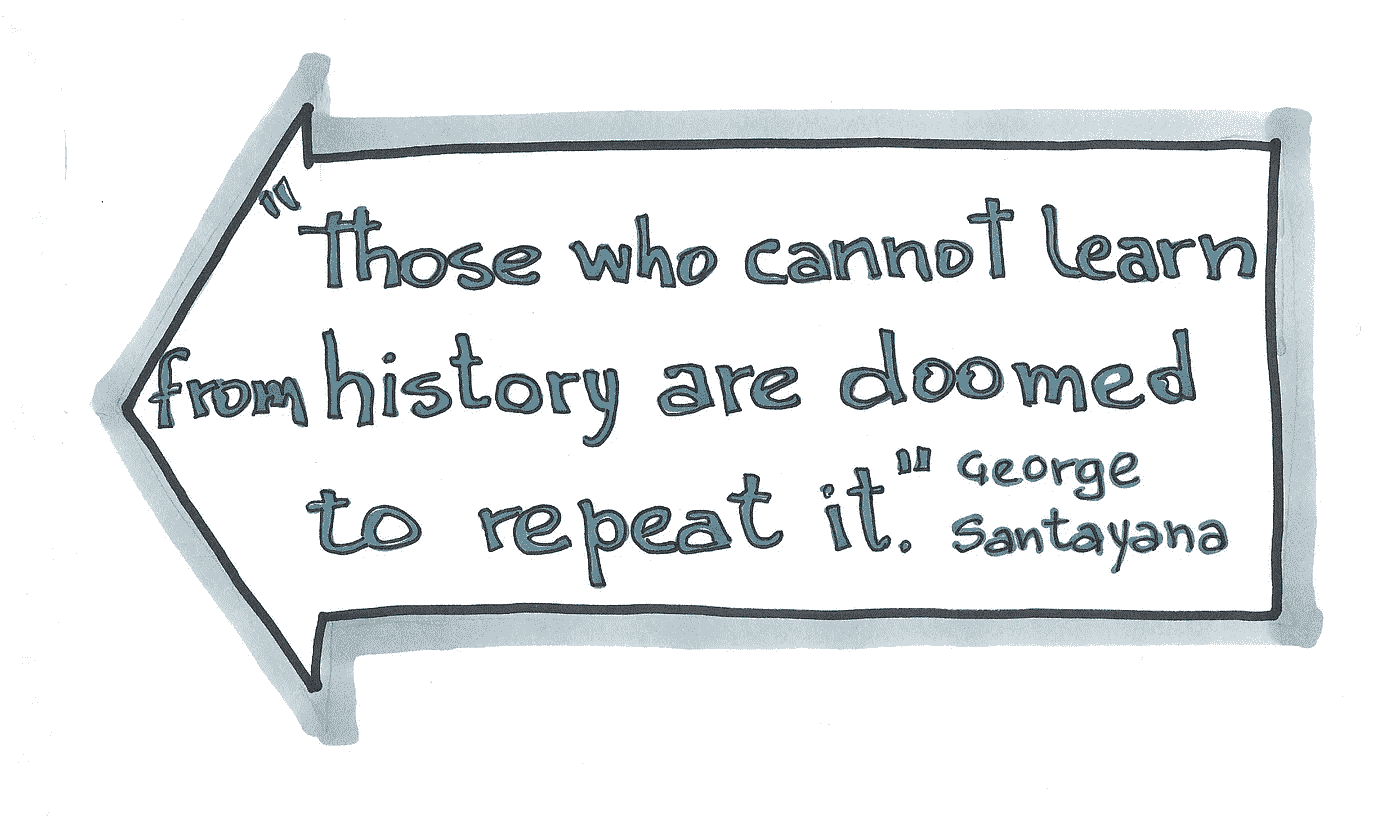 "Those who cannot learn
from history are doomed
to repeat it." George
Santayana